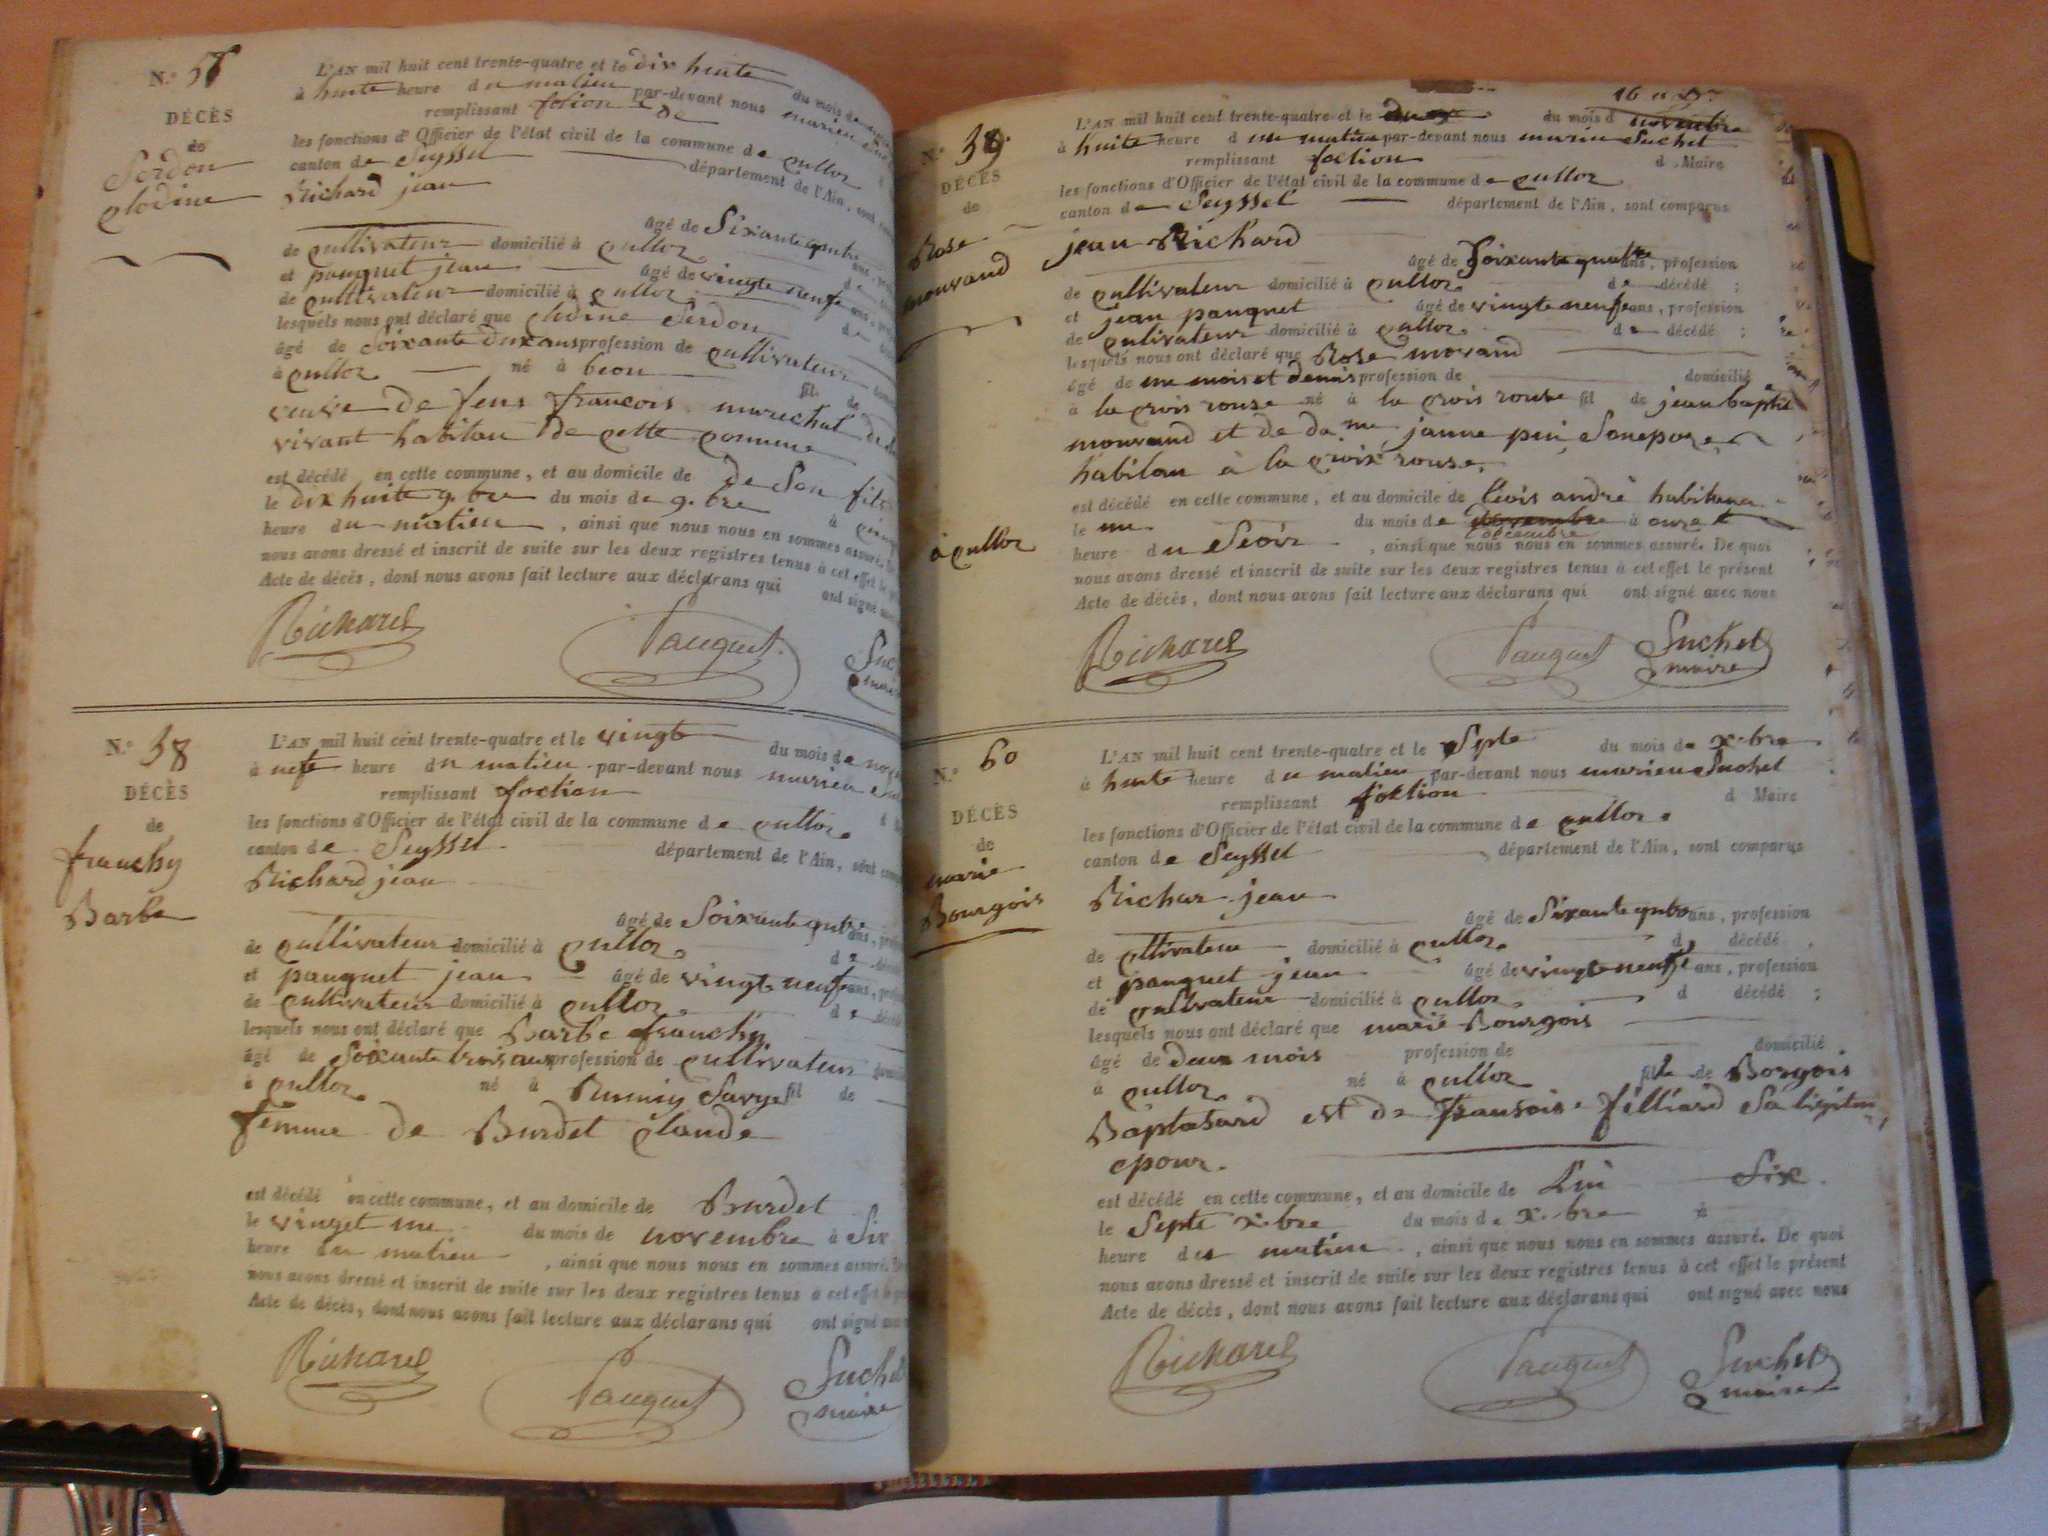 N.º
DÉCÈS
de
Serdon
Clodine
L'AN mil huit cent trente-quatre et le dix huite du mois de
à huite heure du matieu par-devant nous marieu
remplissant foction de
les fonctions d'Officier de l'état civil de la commune de culloz
canton de Seyssel département de l'Ain, sont
Richard jean
âgé de Sixante quatre
de cultivateur domicilié à culloz
et pauquet jean âgé de vingte neufe ans,
de cultivateur domicilié à culloz
lesquels nous ont déclaré que clodine Serdon
âgé de Soixante dix ans profession de cultivateur
à culloz né à beon fil de
veuve de feus francois marechal
vivant habitau de cette commune
est décédé en cette commune, et au domicile de de Son fils
le dix huite 9.bre du mois de 9.bre à
heure du matieu, ainsi que nous nous en sommes assuré.
nous avons dressé et inscrit de suite sur les deux registres tenus à cet effet le
Acte de décès, dont nous avons fait lecture aux déclarans qui ont signé
Richard Pauquet
N.º 58
DÉCÈS
de
franchy
Barbe
L'AN mil huit cent trente-quatre et le vingt du mois de
à nefe heure du matieu par-devant nous marieu
remplissant foction
les fonctions d'Officier de l'état civil de la commune de culloz
canton de Seyssel département de l'Ain, sont
Richard jean
âgé de Soixante quatre ans,
de cultivateur domicilié à culloz
et pauquet jean âgé de vingt neufe ans,
de cultivateur domicilié à culloz
lesquels nous ont déclaré que Barbe franchy
âgé de Soixante trois ans profession de cultivateur
à culloz né à fil de
femme de Burdet Claude
est décédé en cette commune, et au domicile de Burdet
le vinget une du mois de novembre à Six
heure du matieu, ainsi que nous nous en sommes assuré.
nous avons dressé et inscrit de suite sur les deux registres tenus à cet effet
Acte de décès, dont nous avons fait lecture aux déclarans qui ont signé
Richard Pauquet Suchet
maire
N.º 59
DÉCÈS
de
Rose
mourand
à culloz
L'AN mil huit cent trente-quatre et le du mois d novembre
à huite heure du matieu par-devant nous marieu Suchet
remplissant foction d Maire
les fonctions d'Officier de l'état civil de la commune de culloz
canton de Seyssel département de l'Ain, sont comparus
jean Richard
âgé de Soixante quatre ans, profession
de cultivateur domicilié à culloz de décédé ;
et jean pauquet âgé de vingte neufe ans, profession
de cultivateur domicilié à culloz de décédé ;
lesquels nous ont déclaré que Rose morand
âgé de un mois et demis profession de domicilié
à la crois rouse né à la crois rouse fil de jean baptis
mourand et de dame janne
habitau à la croix rouse,
est décédé en cette commune, et au domicile de andré
le un du mois de novembre à onze
decembre
heure du Seoir, ainsi que nous nous en sommes assuré. De quoi
nous avons dressé et inscrit de suite sur les deux registres tenus à cet effet le présent
Acte de décès, dont nous avons fait lecture aux déclarans qui ont signé avec nous
Richard Pauquet Suchet
maire
N.º 60
DÉCÈS
de
marie
Bourgois
L'AN mil huit cent trente-quatre et le Septe du mois de X.bre
à huite heure du matieu par-devant nous marieu Suchet
remplissant foction d Maire
les fonctions d'Officier de l'état civil de la commune de culloz
canton de Seyssel département de l'Ain, sont comparus
Richar jean
âgé de Sixante quatre ans, profession
de cultivateur domicilié à culloz d décédé ,
et pauquet jean âgé de vingte neufe ans, profession
de cultivateur domicilié à culloz d décédé ;
lesquels nous ont déclaré que marie Bourgois
âgé de deux mois profession de domicilié
à culloz né à culloz fille de Borgois
est de fransoise felliard Sa
epour.
est décédé en cette commune, et au domicile de Lui Six
le Septe X.bre du mois de X.bre à
heure du matieu, ainsi que nous nous en sommes assuré. De quoi
nous avons dressé et inscrit de suite sur les deux registres tenus à cet effet le présent
Acte de décès, dont nous avons fait lecture aux déclarans qui ont signé avec nous
Richard Pauquet Suchet
maire